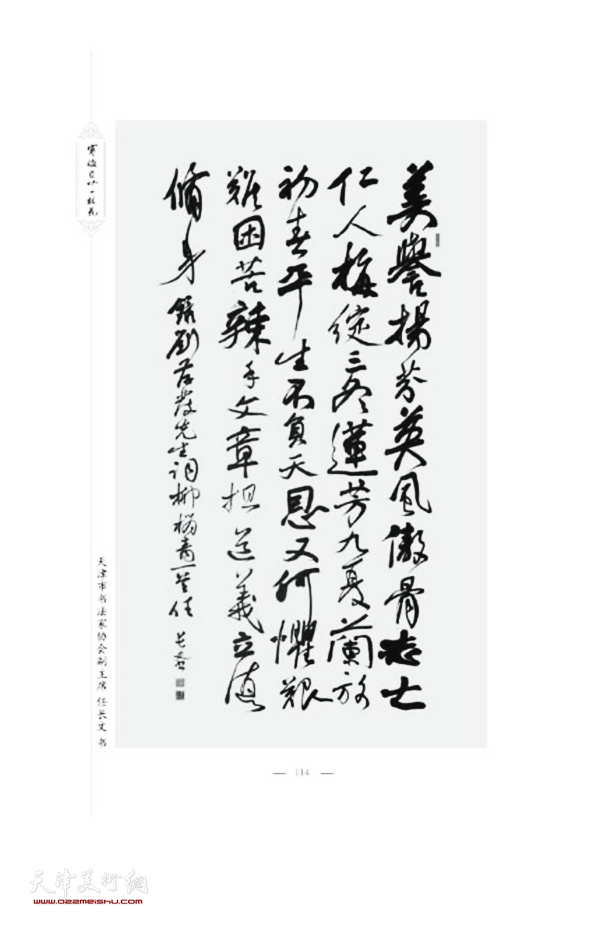 美譽揚芬英風傲骨志士
仁人梅綻三冬蓮芳九夏蘭放
初春平生不負天恩又何懼艱
難困苦辣手文章担道義立德
脩身 錄劉存發先生詞柳梢青一首 任長文
天津市书法家协会副主席 任长文 书
— 114 —
天津美术网
www.022meishu.com